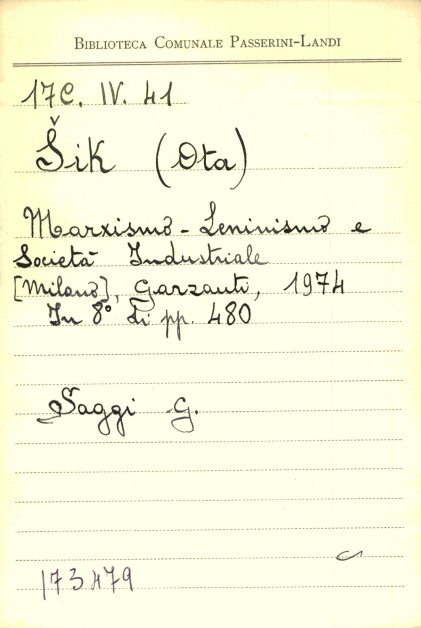 BIBLIOTECA COMUNALE PASSERINI-LANDI
17C. IV. 41
Šik (Ota)
Marxismo - Leninismo e
Società Industriale
[Milano], Garzanti, 1974
In 8° di pp. 480
Saggi G.
173479